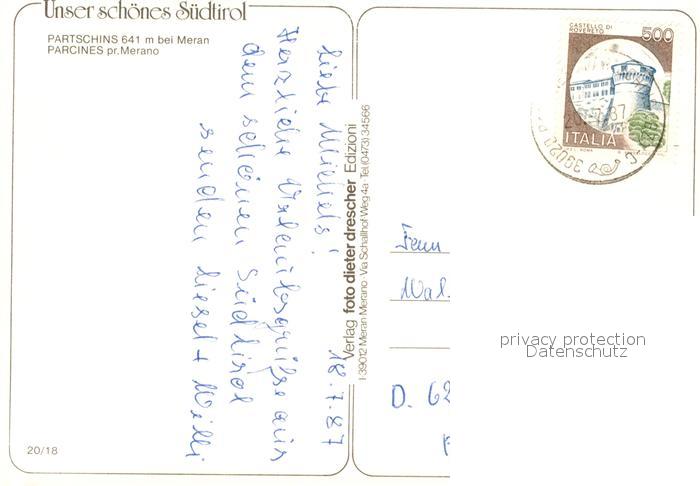 Unser schönes Südtirol
PARTSCHINS 641 m bei Meran
PARCINES pr. Merano
18.7.87
Liebe Michels!
Herzliche Urlaubsgrüße aus
dem schönen Südtirol
senden Liesel + Willi
20/18
Verlag foto dieter drescher Edizioni
I-39012 Meran Merano · Via Schallhof-Weg 4a · Tel. (0473) 34566
CASTELLO DI
ROVERETO
500
ITALIA
87
39020
Fam
Wal.
D. 62
privacy protection
Datenschutz